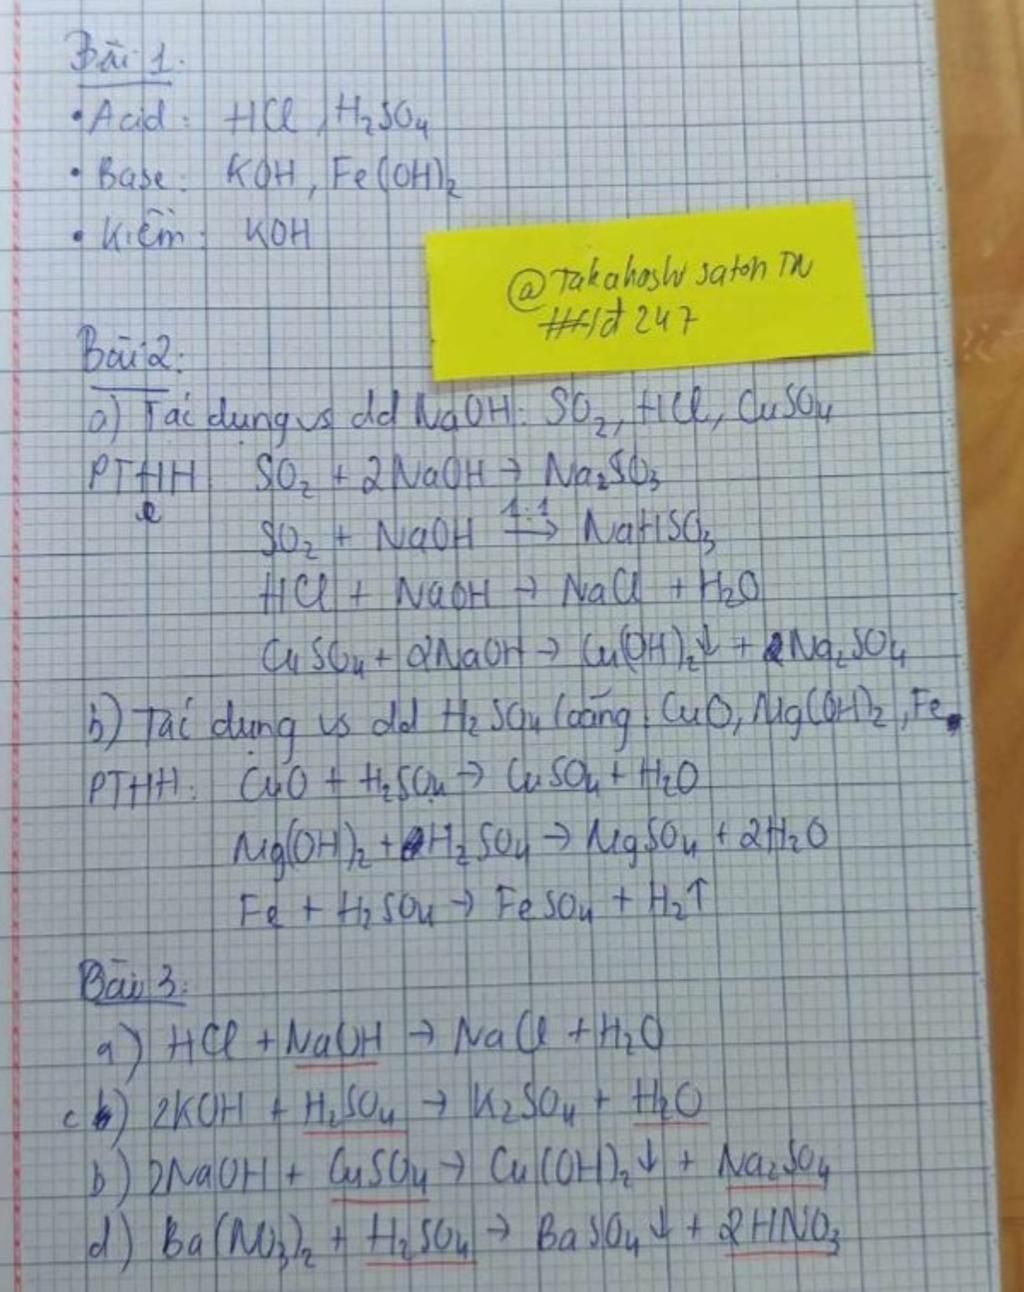 Bài 1:
• Acid: HCl, H₂SO₄
• Base: KOH, Fe(OH)₂
• Kiềm: KOH
@Takahashi satoh TN
###/đ 247
Bài 2:
a) Tác dụng vs dd NaOH: SO₂, HCl, CuSO₄
PTHH SO₂ + 2NaOH → Na₂SO₃
SO₂ + NaOH 1:1→ NaHSO₃
HCl + NaOH → NaCl + H₂O
CuSO₄ + 2NaOH → Cu(OH)₂↓ + Na₂SO₄
b) Tác dụng vs dd H₂SO₄ loãng: CuO, Mg(OH)₂, Fe
PTHH: CuO + H₂SO₄ → CuSO₄ + H₂O
Mg(OH)₂ + H₂SO₄ → MgSO₄ + 2H₂O
Fe + H₂SO₄ → FeSO₄ + H₂↑
Bài 3:
a) HCl + NaOH → NaCl + H₂O
c) 2KOH + H₂SO₄ → K₂SO₄ + H₂O
b) 2NaOH + CuSO₄ → Cu(OH)₂↓ + Na₂SO₄
d) Ba(NO₃)₂ + H₂SO₄ → BaSO₄↓ + 2HNO₃